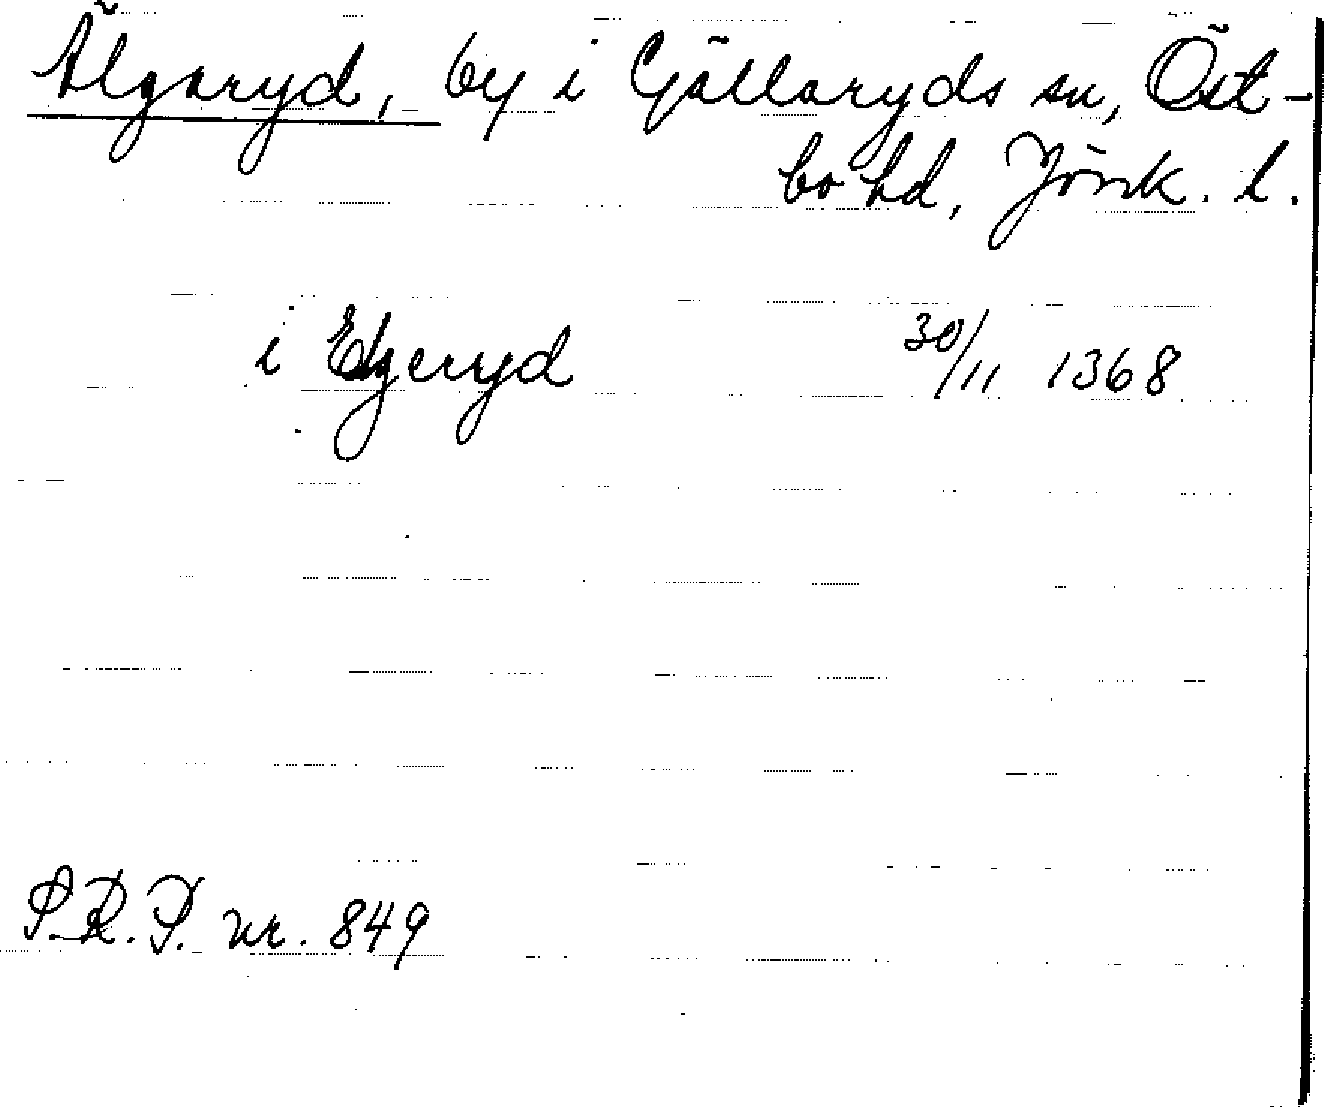 Älgaryd, by i Gällaryds sn, Öst-
bo hd, Jönk. l.
i Elgeryd 30/11 1368
S.R.P. nr. 849